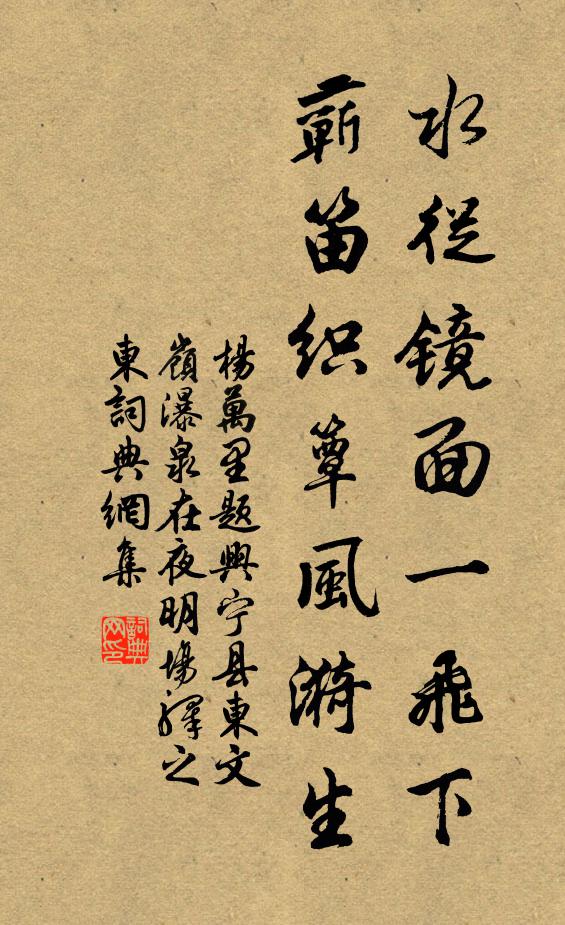 水從鏡面一飛下
蘄笛织簟風漪生
楊萬里題興宁县東文
嶺瀑泉在夜明場驛之
東詞典網集
詞典
网印